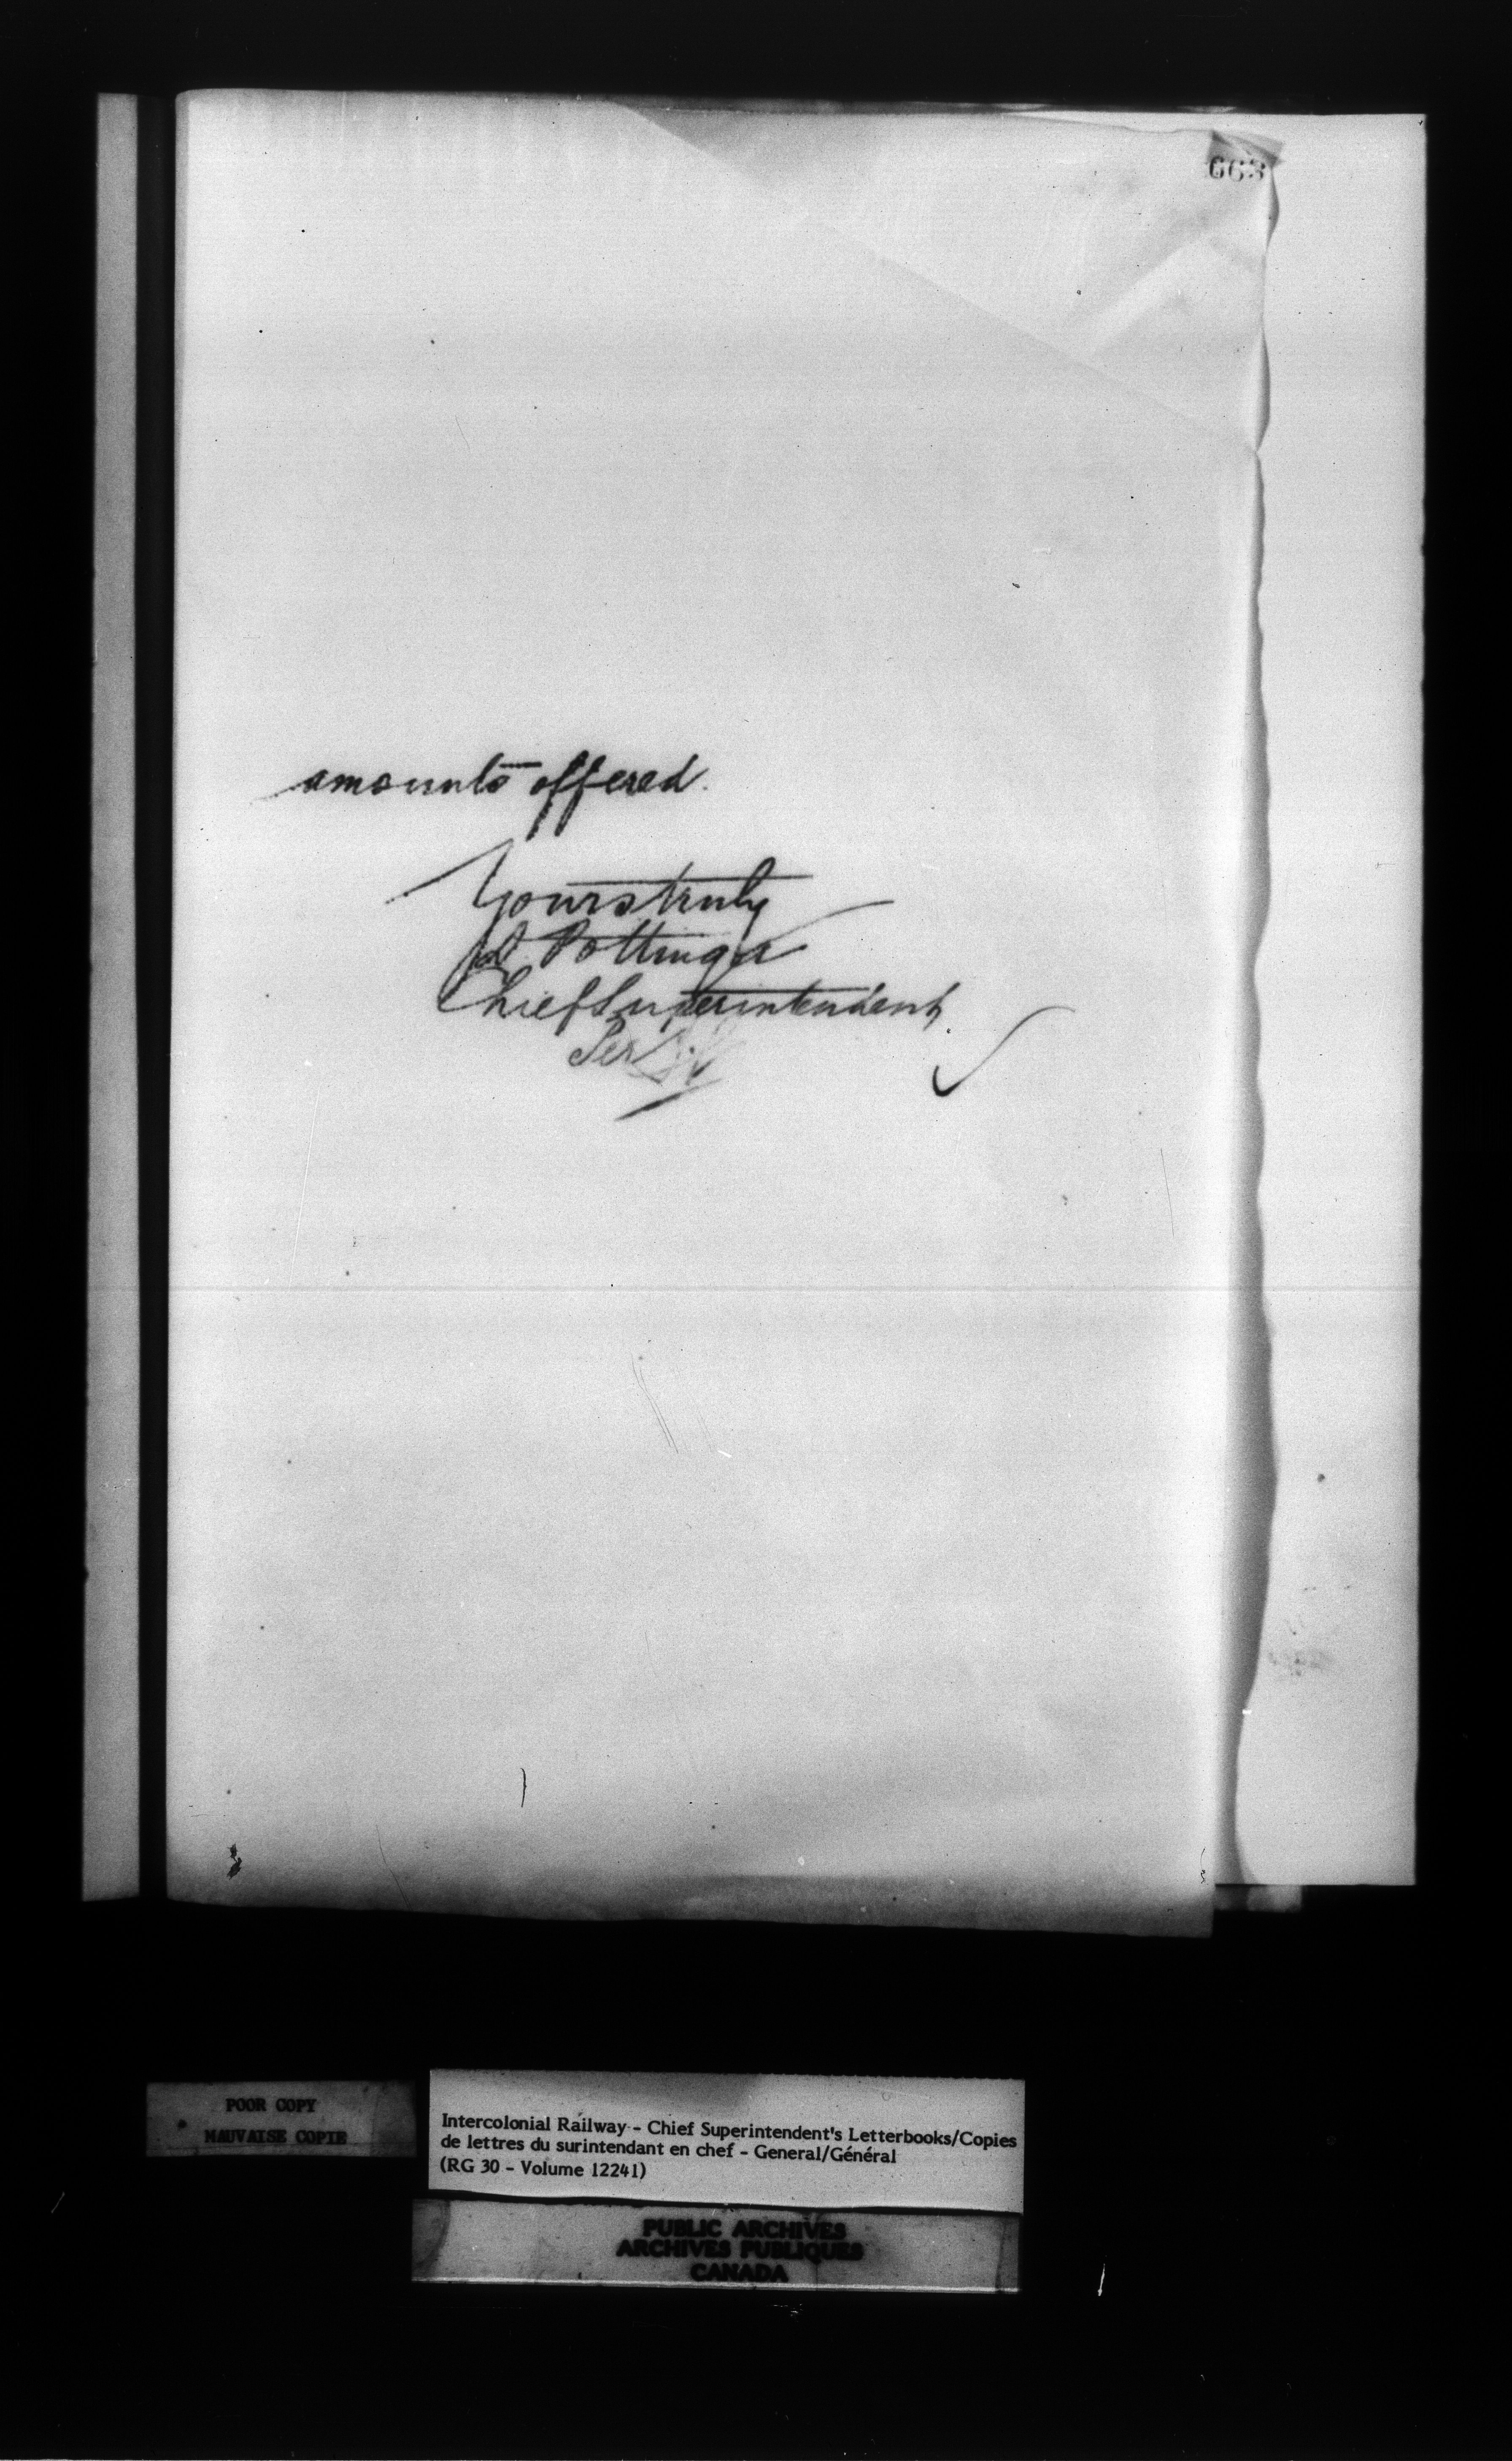 663
amounts offered.
Yours truly
D Pottinger
Chief Superintendent
Per
POOR COPY
MAUVAISE COPIE
Intercolonial Railway - Chief Superintendent's Letterbooks/Copies
de lettres du surintendant en chef - General/Général
(RG 30 - Volume 12241)
PUBLIC ARCHIVES
ARCHIVES PUBLIQUES
CANADA